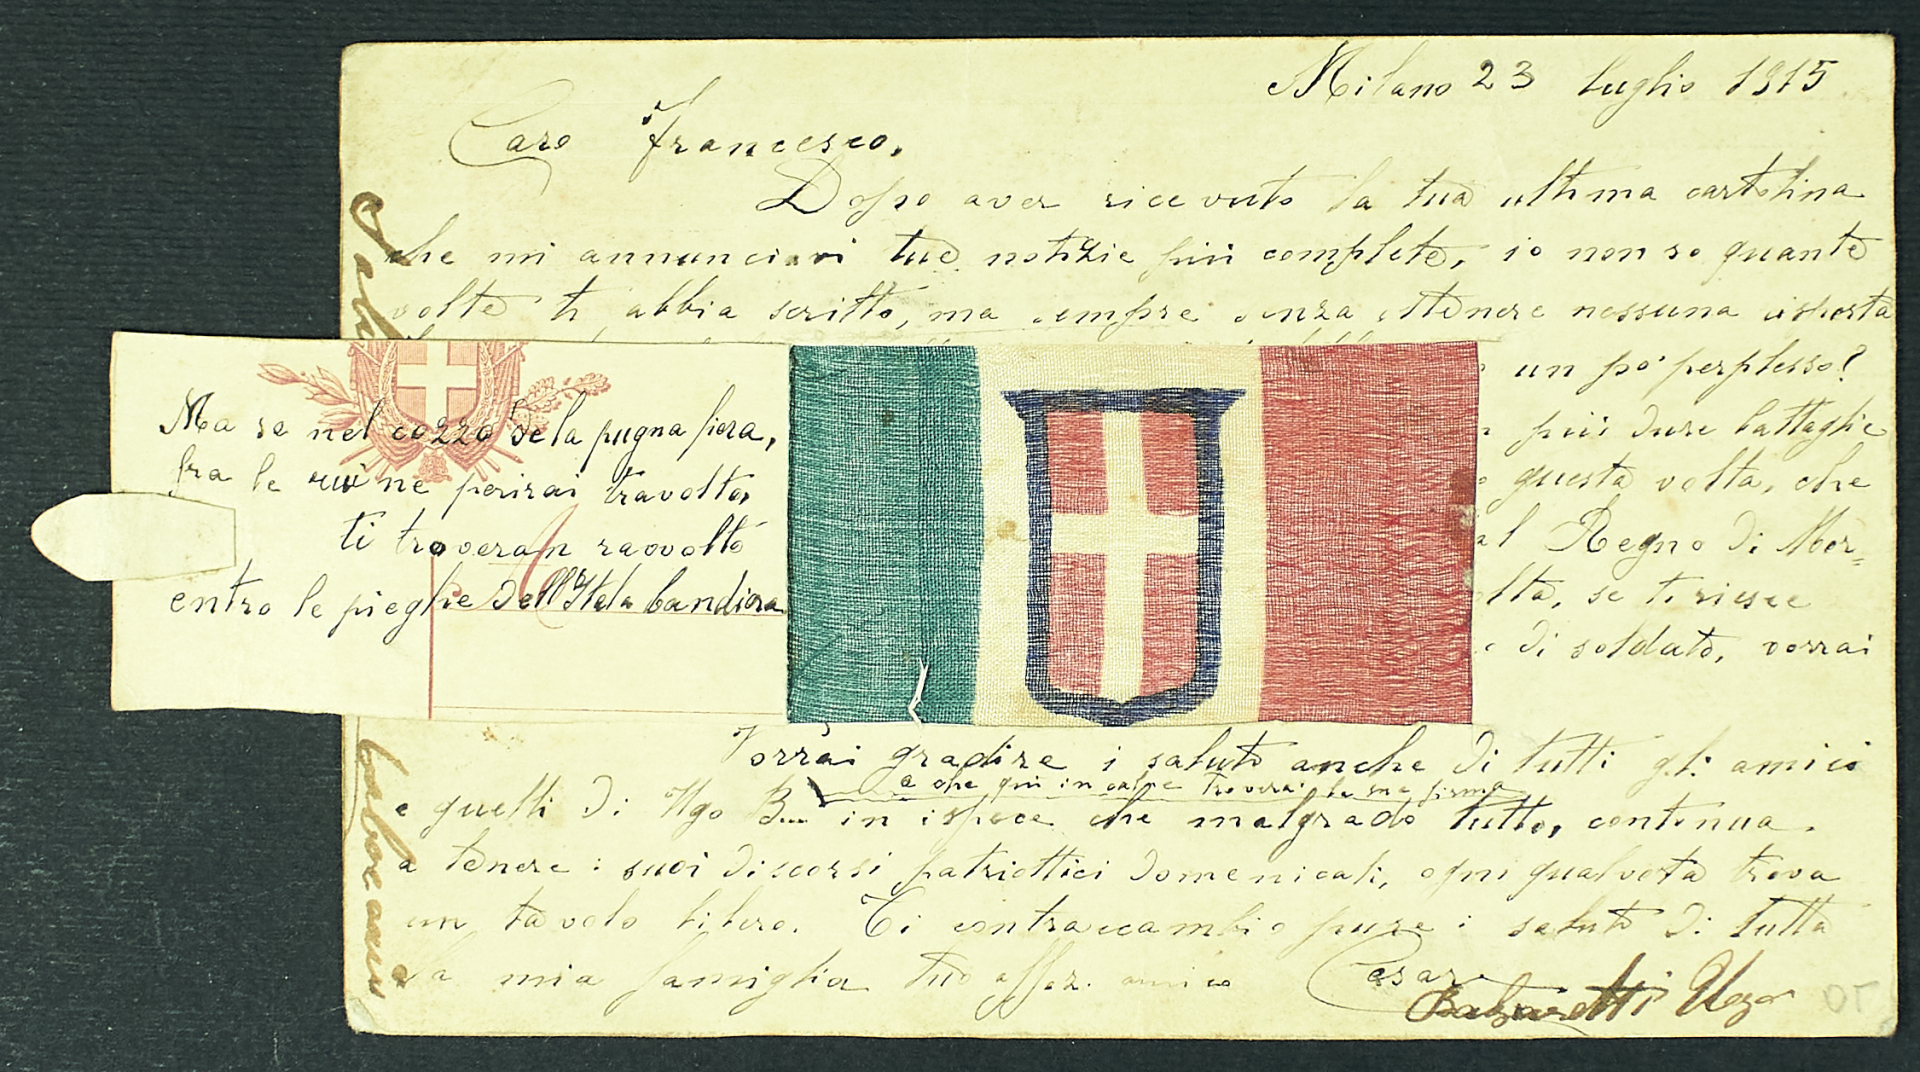 Milano 23 luglio 1915
Caro Francesco,
Dopo aver ricevuto la tua ultima cartolina
che mi annunciavi tue notizie più complete, io non so quante
volte ti abbia scritto, ma sempre senza ottenere nessuna risposta
un po' perplesso?
più dure battaglie
questa volta, che
al Regno di Mor=
se ti riesce
di soldato, vorrai
Ma se nel cozzo de la pugna fiera,
fra le ruine perirai travolto,
ti troveran ravvolto
entro le pieghe dell'Itala bandiera
Vorrai gradire i saluti anche di tutti gli amici
e che qui in calce troverai la sua firma
e quelli di Ugo B... in ispece che malgrado tutto, continua
a tenere i suoi discorsi patriottici domenicali, ogni qualvolta trova
un tavolo libero. Ti contraccambio pure i saluti di tutta
la mia famiglia tuo affez. amico Cesare
Balzaretti Ugo